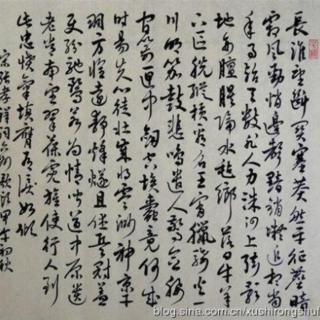 長淮望断關塞莽然平征塵暗
霜風勁悄邊聲黯銷凝追想當
年事殆天數非人力洙泗上絃歌
地亦膻腥隔水氈鄉落日牛羊
下區脱縱横看名王宵獵騎火一
川明笳鼓悲鳴遣人驚念腰
間箭匣中劍空埃蠹竟何成
時易失心徒壯歲將零渺神京干
羽方懷遠靜烽燧且休兵冠蓋
使紛馳騖若為情聞道中原遺
老常南望翠葆霓旌使行人到
此忠憤氣填膺有淚如傾
宋張孝祥詞六州歌頭甲午初秋
blog.sina.com.cn/xushirongshuf